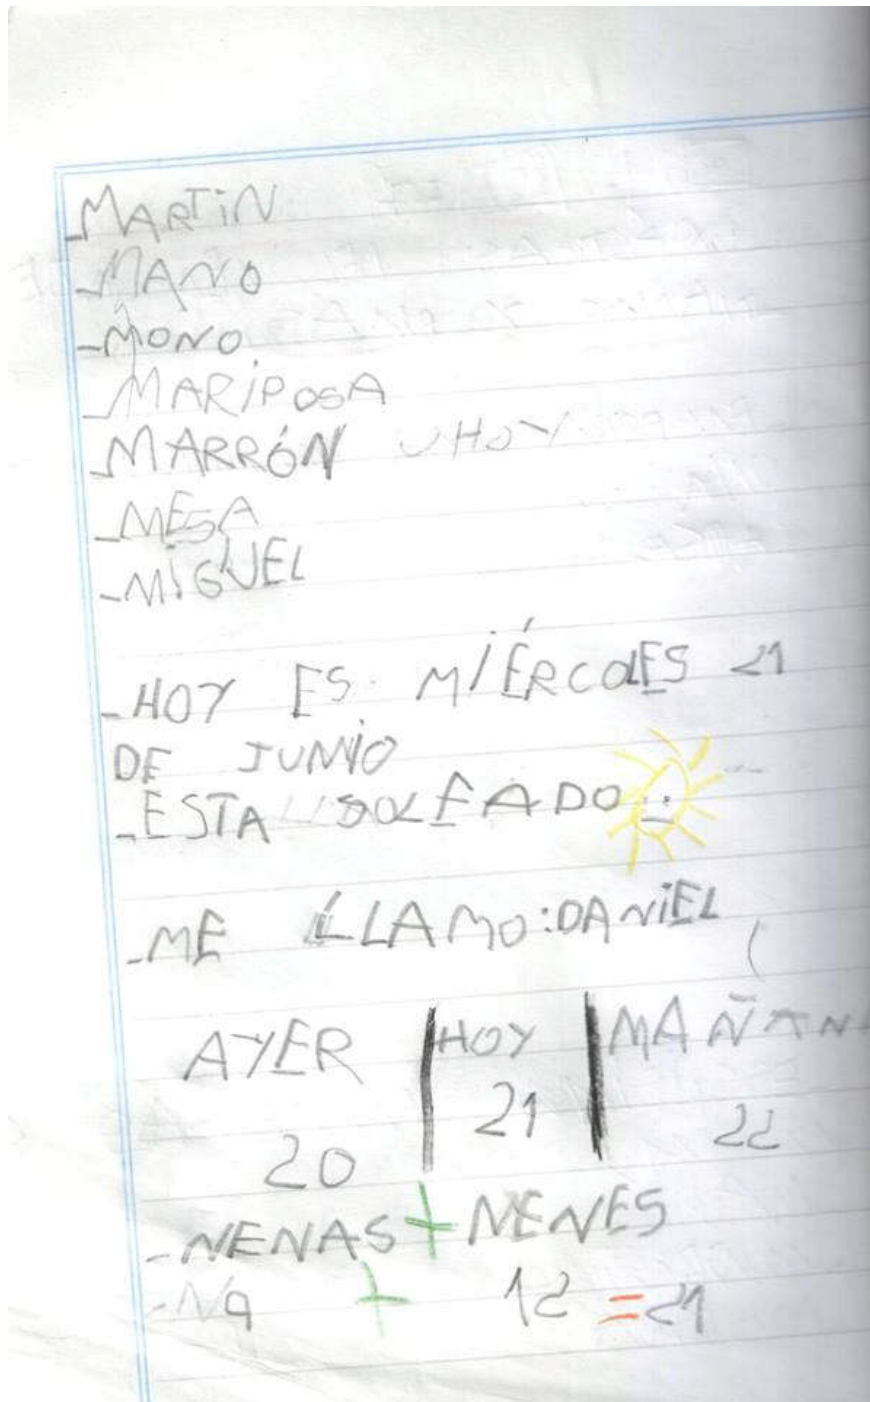 -MARTiN
-MANO
-MONO
-MARiPOSA
-MARRÓN HOY
-MESA
-MiGUEL
-HOY ES MIÉRCOLES 21
DE JUNIO
-ESTA SOLEADO
-ME LLAMO:DANiEL
AYER HOY MAÑAN
20 21 22
-NENAS + NENES
9 + 12 = 21